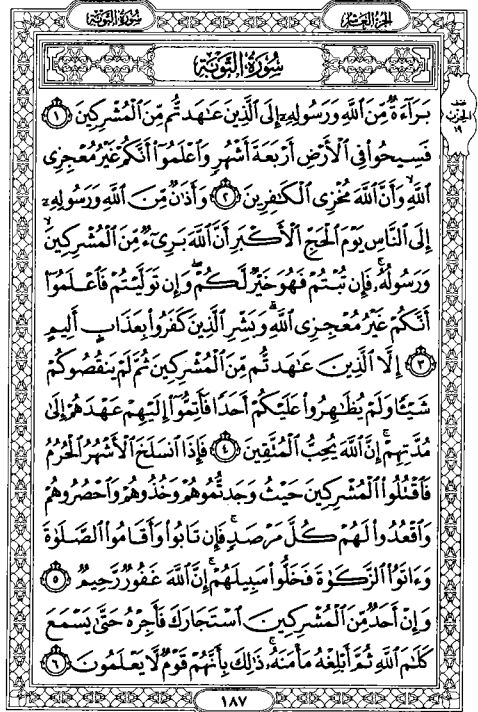 سُورَةُ التَّوْبَةِ
الجُزْءُ العَاشِرُ
سُورَةُ التَّوْبَةِ
بَرَآءَةٌ مِّنَ ٱللَّهِ وَرَسُولِهِۦٓ إِلَى ٱلَّذِينَ عَٰهَدتُّم مِّنَ ٱلْمُشْرِكِينَ ١
فَسِيحُوا۟ فِى ٱلْأَرْضِ أَرْبَعَةَ أَشْهُرٍ وَٱعْلَمُوٓا۟ أَنَّكُمْ غَيْرُ مُعْجِزِى
ٱللَّهِ ۙ وَأَنَّ ٱللَّهَ مُخْزِى ٱلْكَٰفِرِينَ ٢ وَأَذَٰنٌ مِّنَ ٱللَّهِ وَرَسُولِهِۦٓ
إِلَى ٱلنَّاسِ يَوْمَ ٱلْحَجِّ ٱلْأَكْبَرِ أَنَّ ٱللَّهَ بَرِىٓءٌ مِّنَ ٱلْمُشْرِكِينَ ۙ
وَرَسُولُهُۥ ۚ فَإِن تُبْتُمْ فَهُوَ خَيْرٌ لَّكُمْ ۖ وَإِن تَوَلَّيْتُمْ فَٱعْلَمُوٓا۟
أَنَّكُمْ غَيْرُ مُعْجِزِى ٱللَّهِ ۗ وَبَشِّرِ ٱلَّذِينَ كَفَرُوا۟ بِعَذَابٍ أَلِيمٍ
٣ إِلَّا ٱلَّذِينَ عَٰهَدتُّم مِّنَ ٱلْمُشْرِكِينَ ثُمَّ لَمْ يَنقُصُوكُمْ
شَيْـًٔا وَلَمْ يُظَٰهِرُوا۟ عَلَيْكُمْ أَحَدًا فَأَتِمُّوٓا۟ إِلَيْهِمْ عَهْدَهُمْ إِلَىٰ
مُدَّتِهِمْ ۚ إِنَّ ٱللَّهَ يُحِبُّ ٱلْمُتَّقِينَ ٤ فَإِذَا ٱنسَلَخَ ٱلْأَشْهُرُ ٱلْحُرُمُ
فَٱقْتُلُوا۟ ٱلْمُشْرِكِينَ حَيْثُ وَجَدتُّمُوهُمْ وَخُذُوهُمْ وَٱحْصُرُوهُمْ
وَٱقْعُدُوا۟ لَهُمْ كُلَّ مَرْصَدٍ ۚ فَإِن تَابُوا۟ وَأَقَامُوا۟ ٱلصَّلَوٰةَ
وَءَاتَوُا۟ ٱلزَّكَوٰةَ فَخَلُّوا۟ سَبِيلَهُمْ ۚ إِنَّ ٱللَّهَ غَفُورٌ رَّحِيمٌ ٥
وَإِنْ أَحَدٌ مِّنَ ٱلْمُشْرِكِينَ ٱسْتَجَارَكَ فَأَجِرْهُ حَتَّىٰ يَسْمَعَ
كَلَٰمَ ٱللَّهِ ثُمَّ أَبْلِغْهُ مَأْمَنَهُۥ ۚ ذَٰلِكَ بِأَنَّهُمْ قَوْمٌ لَّا يَعْلَمُونَ ٦
نصف
الحزب
١٩
١٨٧